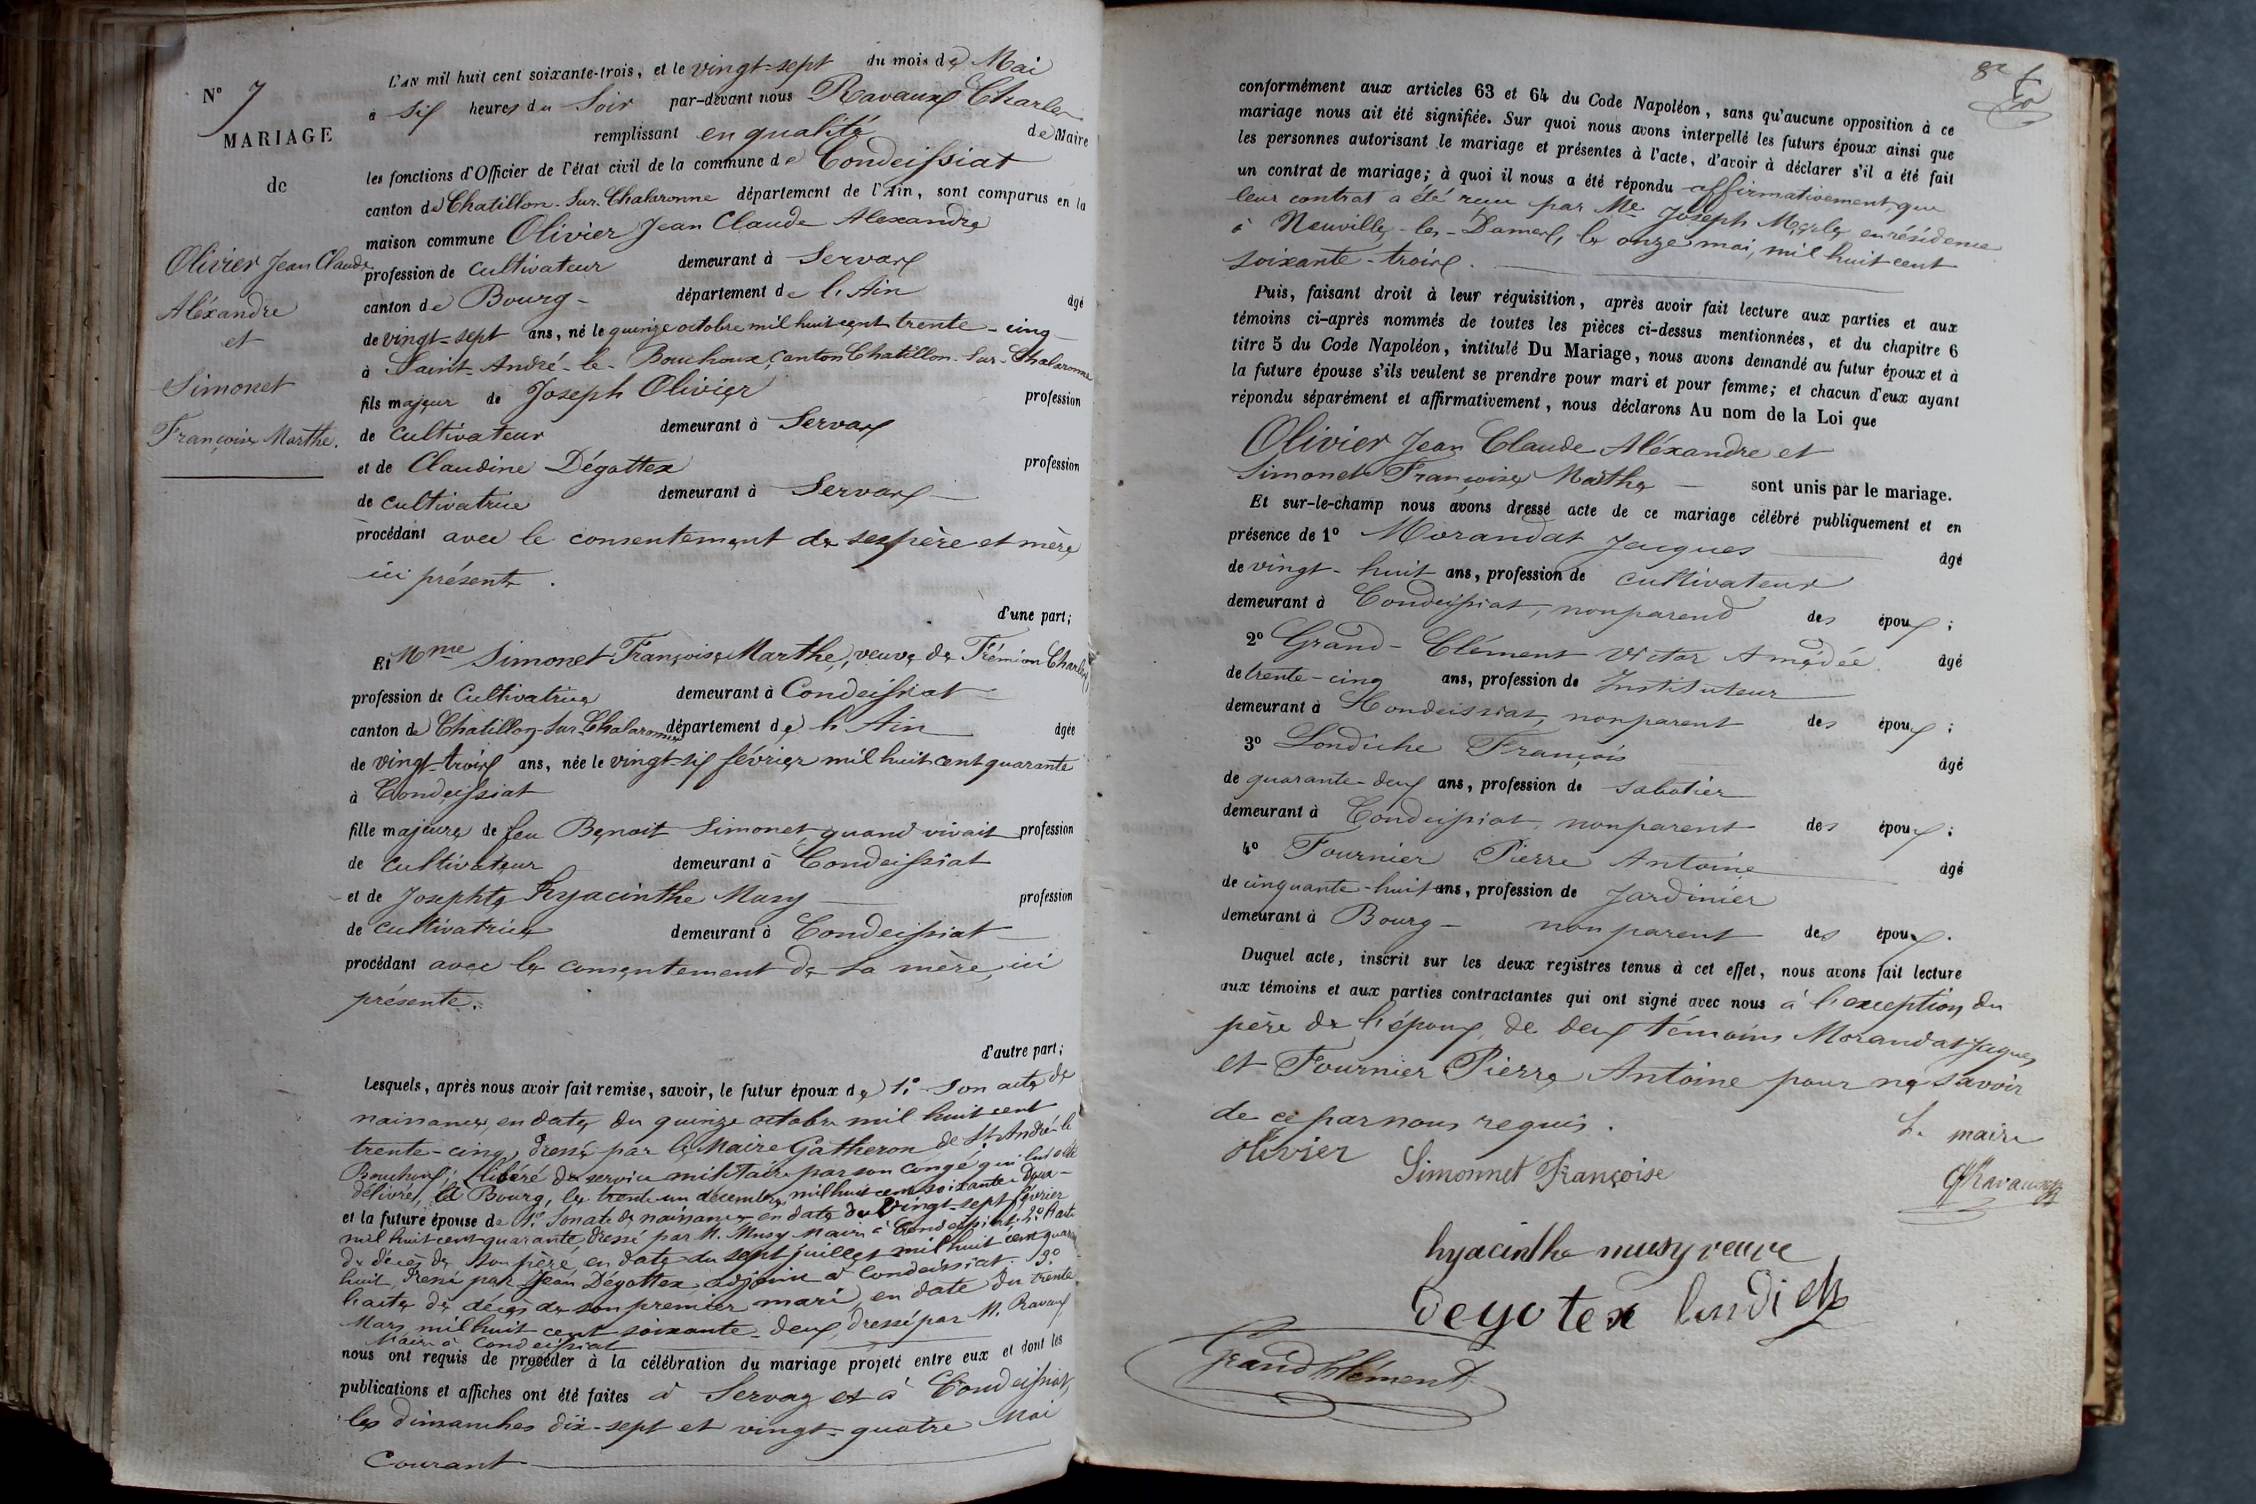 N° 7
MARIAGE
de
Olivier Jean Claude
Aléxandre
et
Simonet
Françoise Marthe.
L'AN mil huit cent soixante-trois, et le vingt-sept du mois de Mai
à six heures du Soir par-devant nous Ravaux Charles
remplissant en qualité de Maire
les fonctions d'Officier de l'état civil de la commune de Condeissiat
canton de Chatillon-sur-Chalaronne département de l'Ain, sont comparus en la
maison commune Olivier Jean Claude Alexandre
profession de cultivateur demeurant à Servas
canton de Bourg - département de l'Ain âgé
de vingt-sept ans, né le quinze octobre mil huit cent trente-cinq
à Saint-André-le-Bouchoux, canton Chatillon-sur-Chalaronne
fils majeur de Joseph Olivier profession
de cultivateur demeurant à Servas
et de Claudine Dégottex profession
de cultivatrice demeurant à Servas
procédant avec le consentement de ses père et mère
ici présents.
d'une part;
Et Mme Simonet Françoise Marthe, veuve de Frémion Charles
profession de Cultivatrice demeurant à Condeissiat
canton de Chatillon-sur-Chalaronne département de l'Ain âgée
de vingt-trois ans, née le vingt-six février mil huit cent quarante
à Condeissiat
fille majeure de feu Benoit Simonet, quand vivait profession
de cultivateur demeurant à Condeissiat
et de Josephte hyacinthe Musy profession
de cultivatrice demeurant à Condeissiat
procédant avec le consentement de sa mère, ici
présente.
d'autre part;
Lesquels, après nous avoir fait remise, savoir, le futur époux de 1° Son acte de
naissance, en date du quinze octobre mil huit cent
trente-cinq, dressé par le Maire Gatheron de St André-le
Bouchoux; libéré du service militaire par son congé qui lui a été
délivré, à Bourg, le trente-un décembre mil huit cent soixante-deux -
et la future épouse de 1° Son acte de naissance en date du vingt-sept février
mil huit cent quarante, dressé par M. Musy Maire à Condeissiat. 2° l'acte
de décès de son père, en date du sept juillet mil huit cent quarante
huit, dressé par Jean Dégottex, adjoint à Condeissiat. 3°
l'acte de décès de son premier mari, en date du trente
Mars mil huit cent soixante-deux, dressé par M. Ravaux
Maire à Condeissiat
nous ont requis de procéder à la célébration du mariage projeté entre eux et dont les
publications et affiches ont été faites à Servas et à Condeissiat,
les dimanches dix-sept et vingt-quatre Mai
Courant
conformément aux articles 63 et 64 du Code Napoléon, sans qu'aucune opposition à ce
mariage nous ait été signifiée. Sur quoi nous avons interpellé les futurs époux ainsi que
les personnes autorisant le mariage et présentes à l'acte, d'avoir à déclarer s'il a été fait
un contrat de mariage; à quoi il nous a été répondu affirmativement, que
leur contrat a été reçu par Me Joseph Merle, en résidence
à Neuville-les-Dames, le onze mai, mil huit cent
soixante-trois.
Puis, faisant droit à leur réquisition, après avoir fait lecture aux parties et aux
témoins ci-après nommés de toutes les pièces ci-dessus mentionnées, et du chapitre 6
titre 5 du Code Napoléon, intitulé Du Mariage, nous avons demandé au futur époux et à
la future épouse s'ils veulent se prendre pour mari et pour femme; et chacun d'eux ayant
répondu séparément et affirmativement, nous déclarons Au nom de la Loi que
Olivier Jean Claude Aléxandre et
Simonet Françoise Marthe - sont unis par le mariage.
Et sur-le-champ nous avons dressé acte de ce mariage célébré publiquement et en
présence de 1° Morandat Jacques âgé
de vingt-huit ans, profession de cultivateur
demeurant à Condeissiat, non parend des époux;
2° Grand-Clément Victor Amédée âgé
de trente-cinq ans, profession de Instituteur
demeurant à Condeissiat, non parent des époux;
3° Londiche François âgé
de quarante-deux ans, profession de sabotier
demeurant à Condeissiat, non parent des époux;
4° Fournier Pierre Antoine âgé
de cinquante-huit ans, profession de Jardinier
demeurant à Bourg - non parent des époux.
Duquel acte, inscrit sur les deux registres tenus à cet effet, nous avons fait lecture
aux témoins et aux parties contractantes qui ont signé avec nous à l'exception du
père de l'époux, de deux témoins Morandat Jacques
et Fournier Pierre Antoine pour ne savoir
de ce par nous requis.
Le maire
Olivier Simonnet Françoise Ravaux
hyacinthe musy veuve
degotex londich
Grand Clément